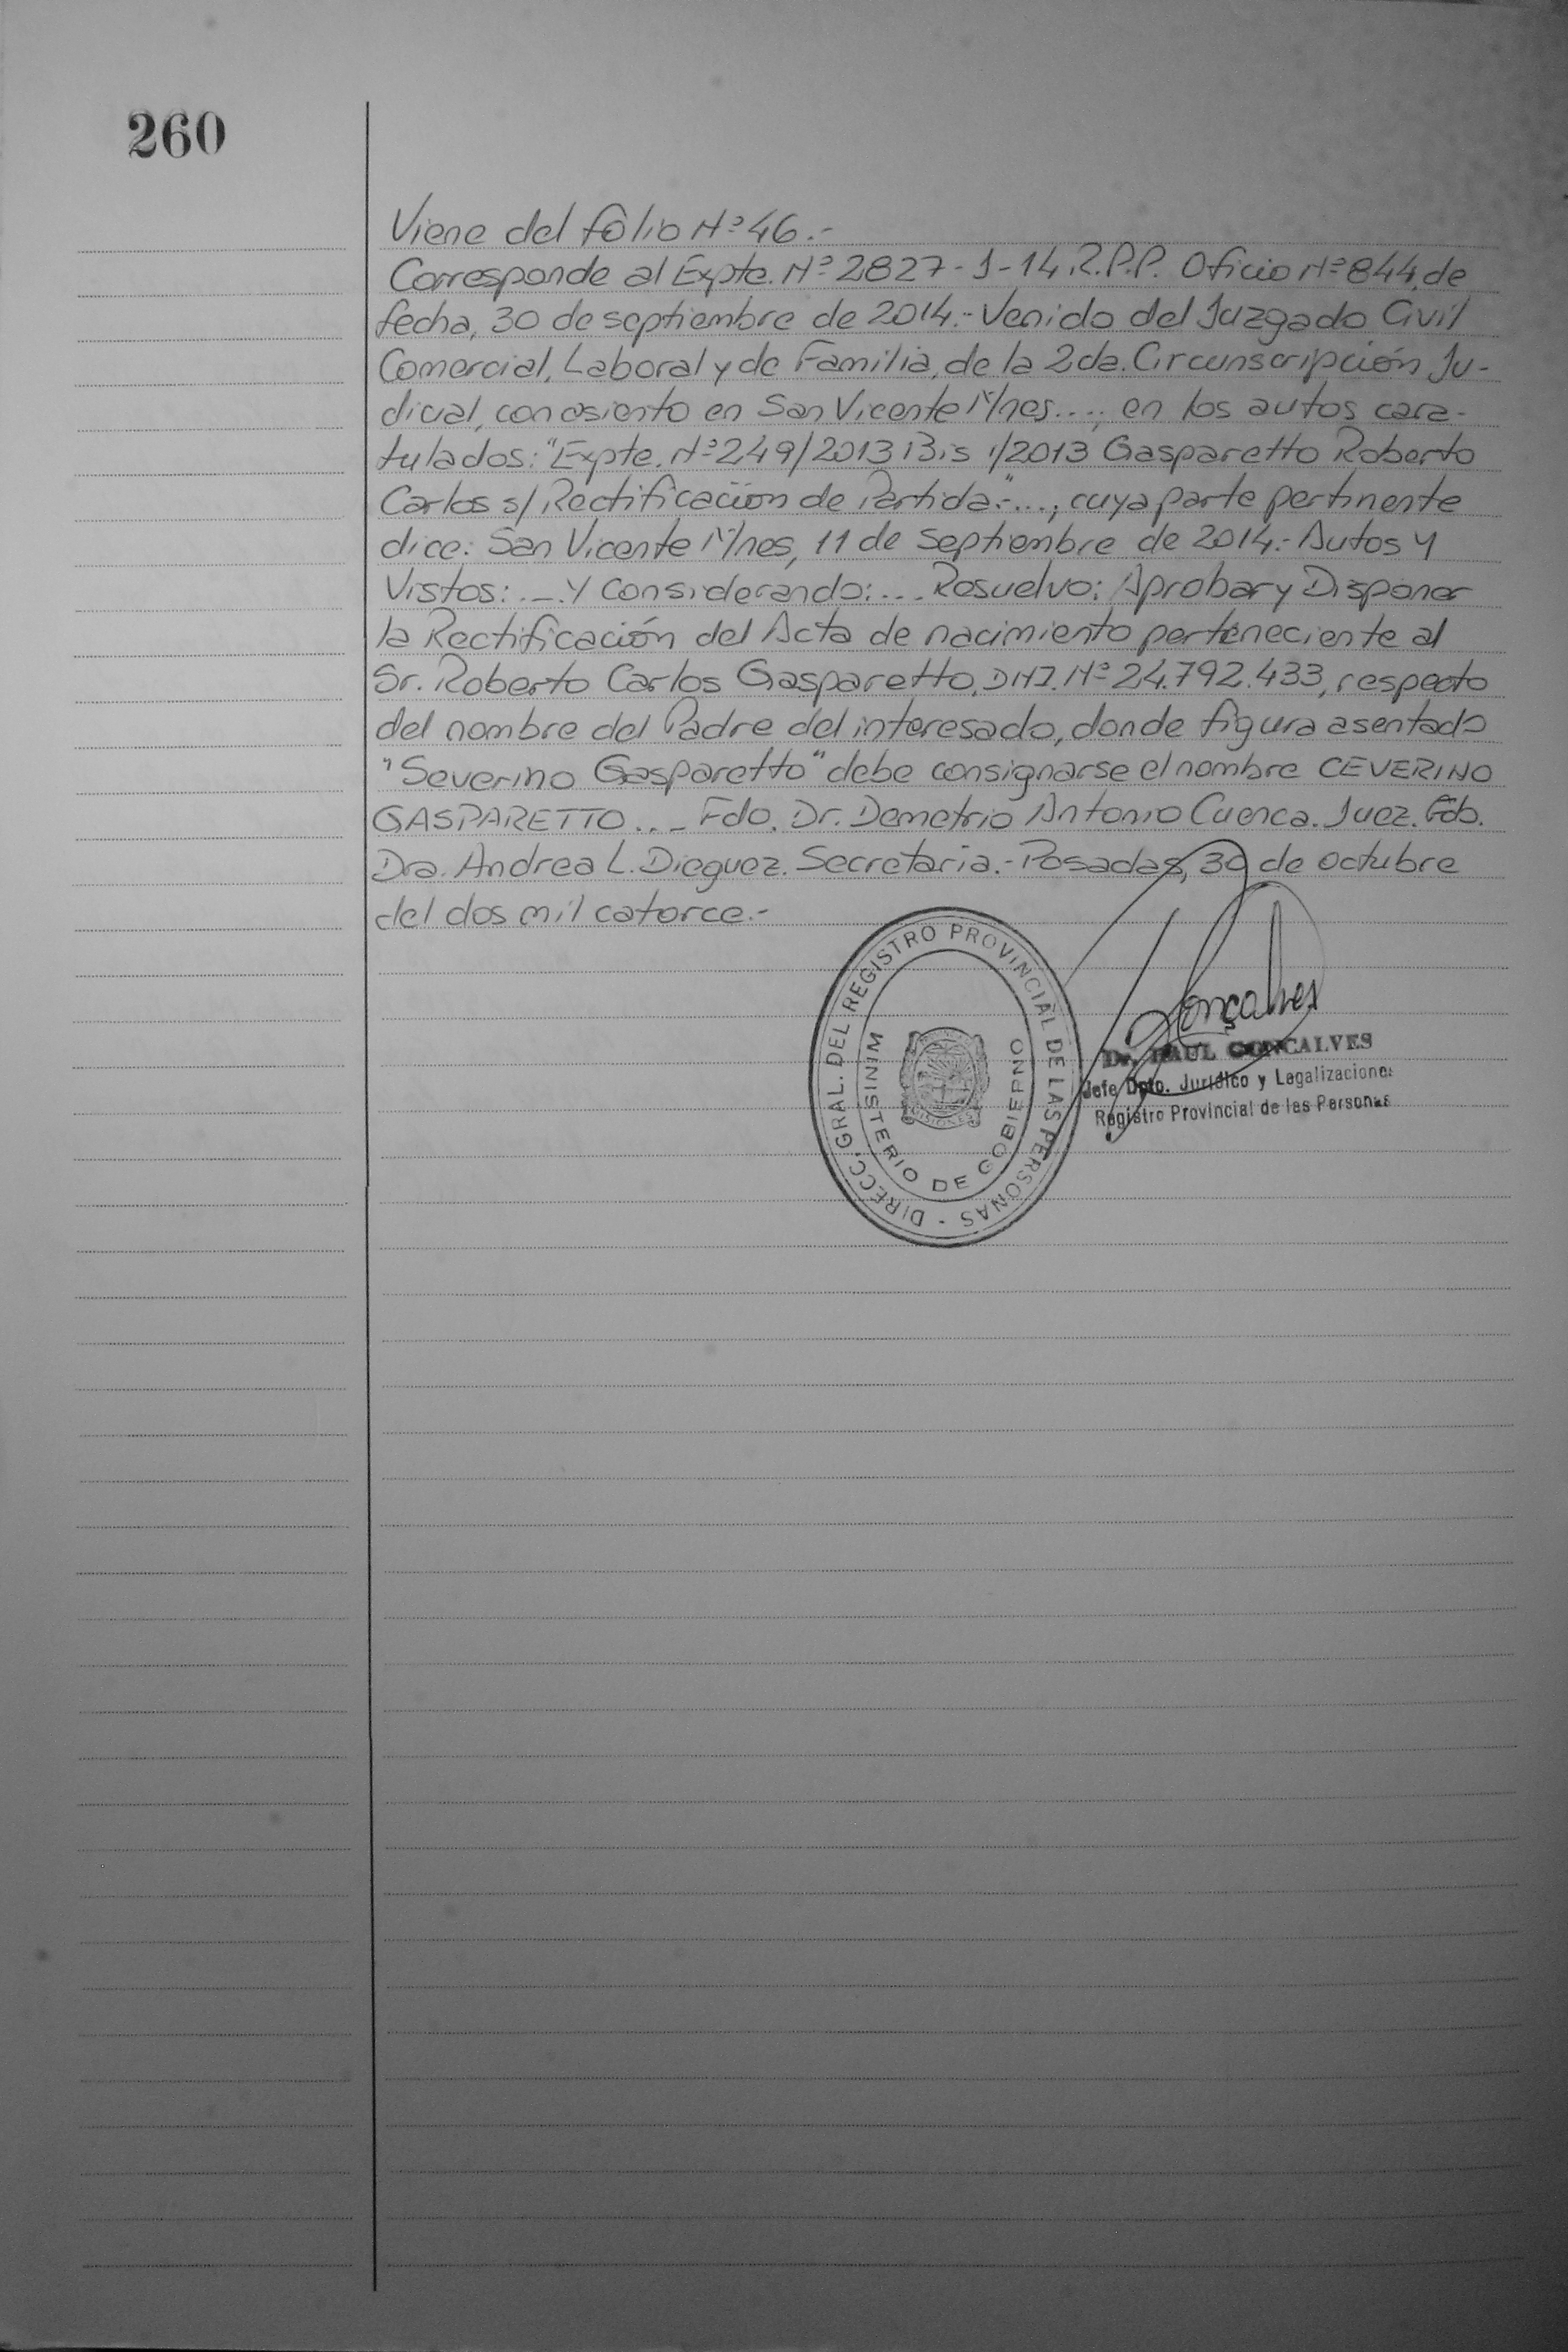 260
Viene del folio Nº 46.-
Corresponde al Expte. Nº 2827-J-14.R.P.P. Oficio Nº 844, de
fecha, 30 de septiembre de 2014.- Venido del Juzgado Civil
Comercial, Laboral y de Familia, de la 2da. Circunscripción Ju-
dicial, con asiento en San Vicente M/nes...., en los autos cara-
tulados: "Expte. Nº 249/2013 Bis 1/2013 Gasparetto Roberto
Carlos s/ Rectificación de Partida.-"..., cuya parte pertinente
dice: San Vicente M/nes, 11 de Septiembre de 2014.- Autos Y
Vistos: ... Y Considerando: ... Resuelvo: Aprobar y Disponer
la Rectificación del Acta de nacimiento perteneciente al
Sr. Roberto Carlos Gasparetto, DNI. Nº 24.792.433, respecto
del nombre del Padre del interesado, donde figura asentado
"Severino Gasparetto" debe consignarse el nombre CEVERINO
GASPARETTO ... Fdo. Dr. Demetrio Antonio Cuenca. Juez. Fdo.
Dra. Andrea L. Dieguez. Secretaria.- Posadas, 30 de octubre
del dos mil catorce.-
DIRECC. GRAL. DEL REGISTRO PROVINCIAL DE LAS PERSONAS -
MINISTERIO DE GOBIERNO
MISIONES
Gonçalves
Dr. RAUL GONCALVES
Jefe Dpto. Jurídico y Legalizaciones
Registro Provincial de las Personas